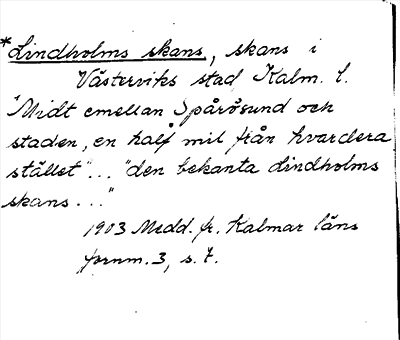 *Lindholms skans, skans i
Västerviks stad Kalm. l.
"Midt emellan Spårösund och
staden, en half mil från hvardera
stället"... "den bekanta Lindholms
skans..."
1903 Medd. fr. Kalmar läns
fornm. 3, s. 7.